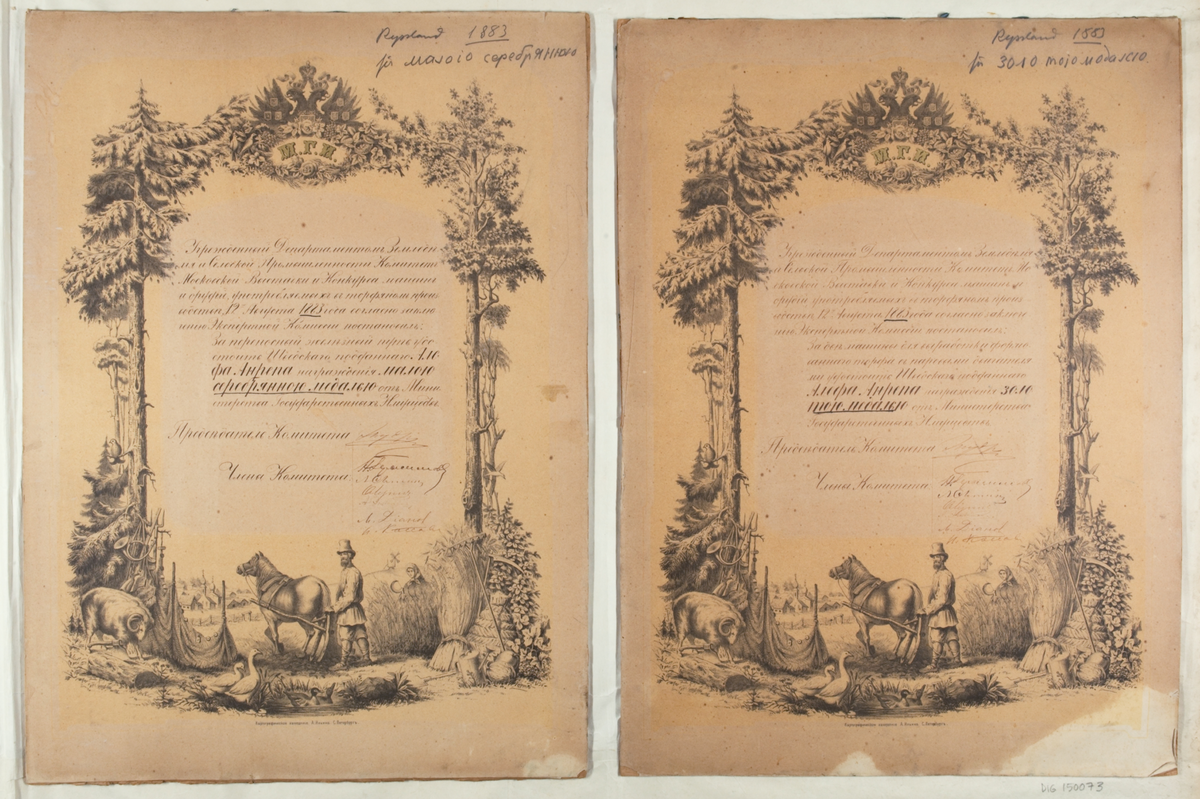 Ryssland 1883
für малою серебрянною
М.Г.И.
Учрежденный Департаментомъ Земледѣ
лія и Сельской Промышленности Комитетъ
Московской Выставки и Конкурса машинъ
и орудій, употребляемыхъ въ торфяномъ произ
водствѣ, 12 Августа 1883 года согласно заклю
ченію Экспертной Коммисіи постановилъ:
За переносный желѣзный
Шведскаго подданнаго Аль
фа Анрепа наградить малою
серебрянною медалью отъ Мини
стерства Государственныхъ Имуществъ
Предсѣдатель Комитета
Члены Комитета
Ryssland 1883
für золотою медалью
М.Г.И.
Учрежденный Департаментомъ Земледѣлія
и Сельской Промышленности Комитетъ Мо
сковской Выставки и Конкурса машинъ и
орудій употребляемыхъ въ торфяномъ произ
водствѣ 12 Августа 1883 года согласно заключе
нію Экспертной Коммисіи постановилъ:
За двѣ машины для выработки формо
ваннаго торфа съ паровымъ двигателемъ
Шведскаго подданнаго
Альфа Анрепа наградить золо
тою медалью отъ Министерства
Государственныхъ Имуществъ
Предсѣдатель Комитета
Члены Комитета
DIG 150073